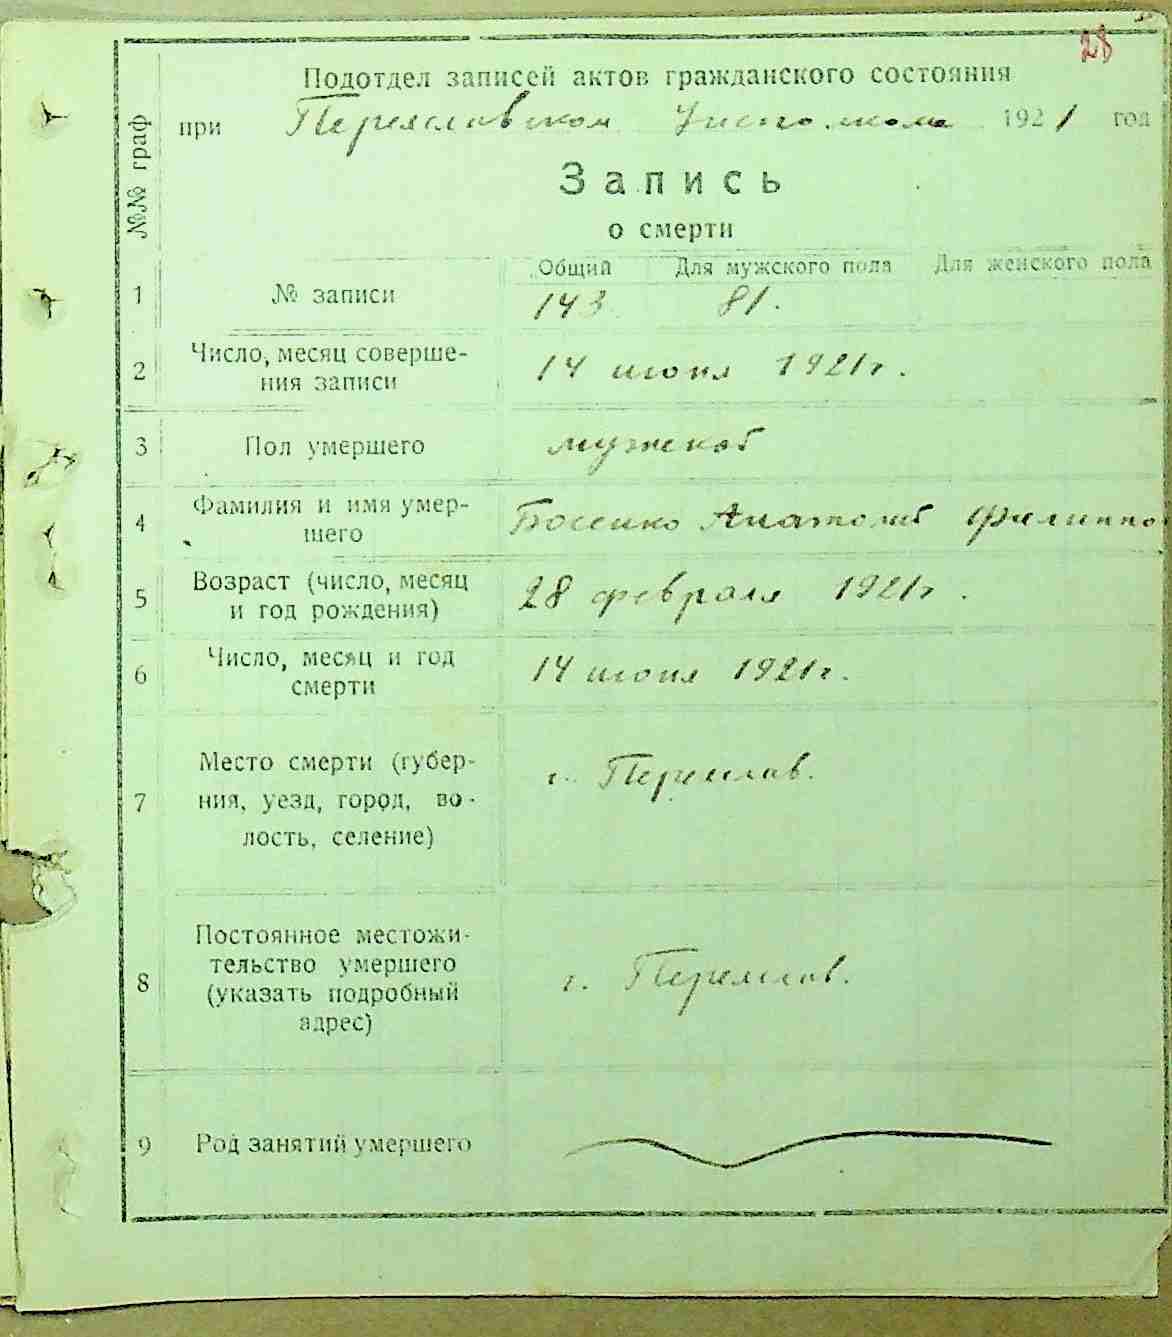 28
Подотдел записей актов гражданского состояния
при Переяславском Исполкоме 1921 год
№№ граф
Запись
о смерти
Общий Для мужского пола Для женского пола
1 № записи 143 81.
2 Число, месяц соверше-
ния записи 14 июня 1921г.
3 Пол умершего мужской
4 Фамилия и имя умер-
шего Босенко Анатолий Филиппо
5 Возраст (число, месяц
и год рождения) 28 февраля 1921г.
6 Число, месяц и год
смерти 14 июня 1921г.
7 Место смерти (губер-
ния, уезд, город, во-
лость, селение) г. Переяслав.
8 Постоянное местожи-
тельство умершего
(указать подробный
адрес) г. Переяслав.
9 Род занятий умершего